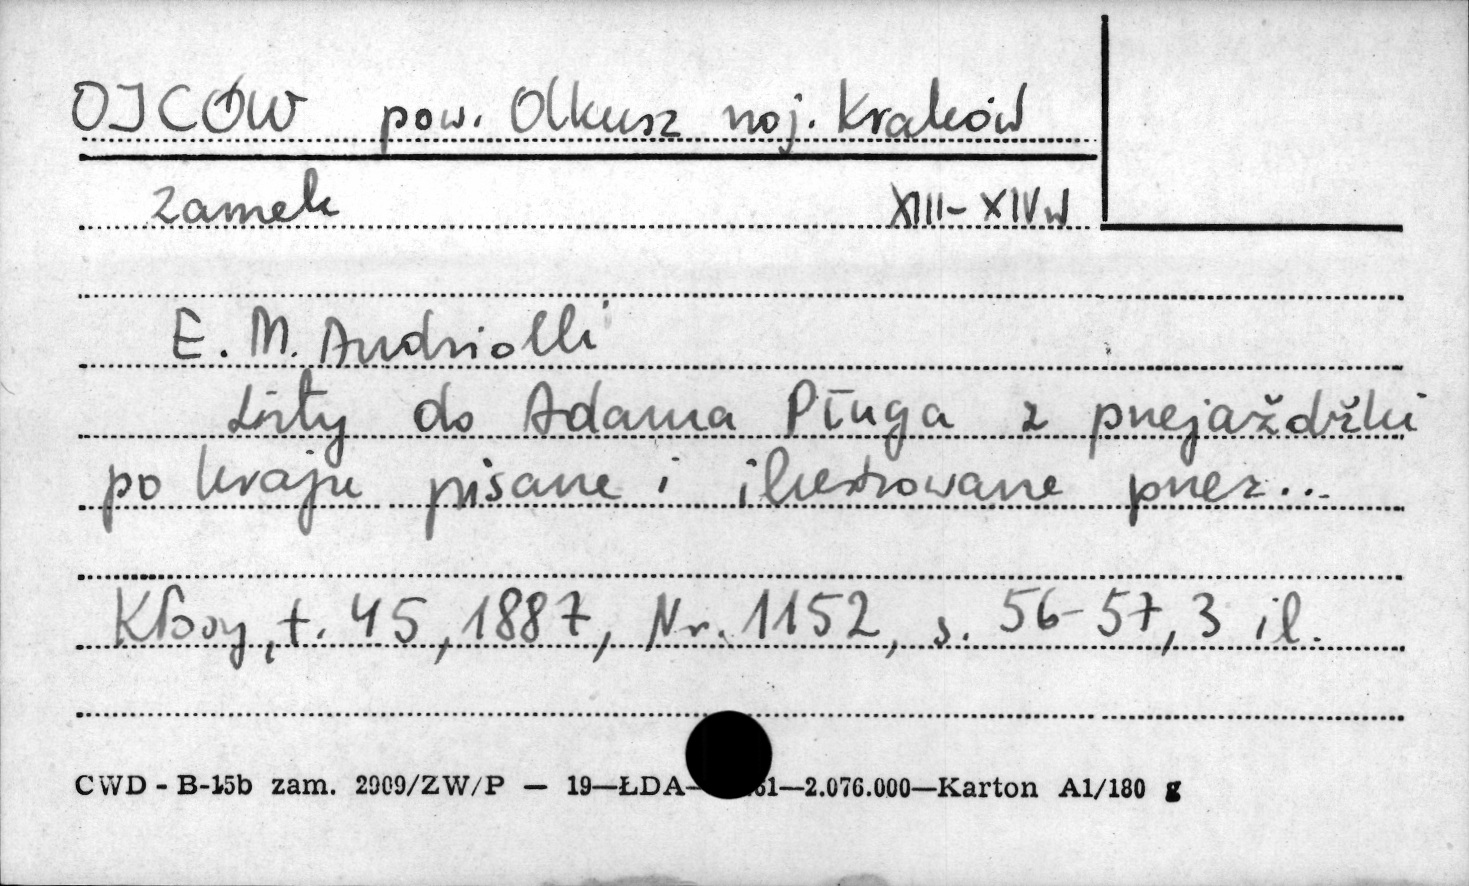 OJCÓW pow. Olkusz woj. Kraków
zamek XIII-XIV w
E. M. Andriolli
Listy do Adama Pługa z przejażdżki
po kraju pisane i ilustrowane przez...
Kłosy, t. 45, 1887, Nr. 1152, s. 56-57, 3 il.
CWD - B-15b zam. 2909/ZW/P — 19—ŁDA— 61—2.076.000—Karton A1/180 g